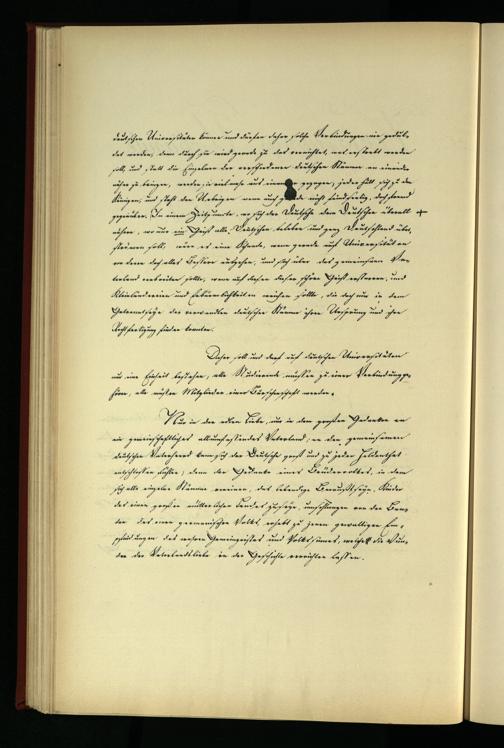 deutschen Universitäten können und dürfen daher solche Verbindungen nie geduld-
det werden, denn durch sie wird gerade zu das vernichtet, was erstrebt werden
soll, und statt die Einzelnen der verschiedenen deutschen Stämme an einander
näher zu bringen, werden sie vielmehr aus einander gezogen, jeder hält sich zu den
Seinigen, und steht den Uebrigen wenn auch gerade nicht feindselig, doch fremd
gegenüber. In einem Zeitpunkte, wo sich der Deutsche dem Deutschen überall
nähern, wo nur ein Geist alle Deutschen beleben und ganz Deutschland über-
strömen soll, wäre es eine Schande, wenn gerade auf Universitäten
von denen doch alles Bessere ausgehen, und sich über das gemeinsame Va-
terland verbreiten sollte, wenn auf diesen dieser schöne Geist ersterben, und
Kleinlichkeiten und Erbärmlichkeiten weichen sollte, die doch nur in dem
der verwandten deutschen Stämme ihren Ursprung und ihre
Rechtfertigung finden konnten.
Daher soll und darf auf deutschen Universitäten
nur eine Einheit bestehen, alle Studierende müssen zu einer Verbindung ge-
hören, alle müssen Mitglieder einer Burschenschaft werden.
Nur in der edlen Liebe, nur in dem großen Gedanken an
ein gemeinschaftliches allumfassendes Vaterland, an den gemeinsamen
deutschen Vaterheerd kann sich der Deutsche groß und zu jeder Heldenthat
entschlossen fühlen; denn der Gedanke eines Brudervolkes, in dem
sich alle einzelnen Stämme vereinen, das lebendige Bewußtseyn, Kinder
des einen großen mütterlichen Landes zu seyn, umschlungen von den Ban-
den des einen germanischen Volks, erhebt zu jenen gewaltigen Em-
pfindungen des wahren Gemeingeistes und Volkssinnes, welche die Wun-
der der Vaterlandsliebe in der Geschichte verrichten lassen.